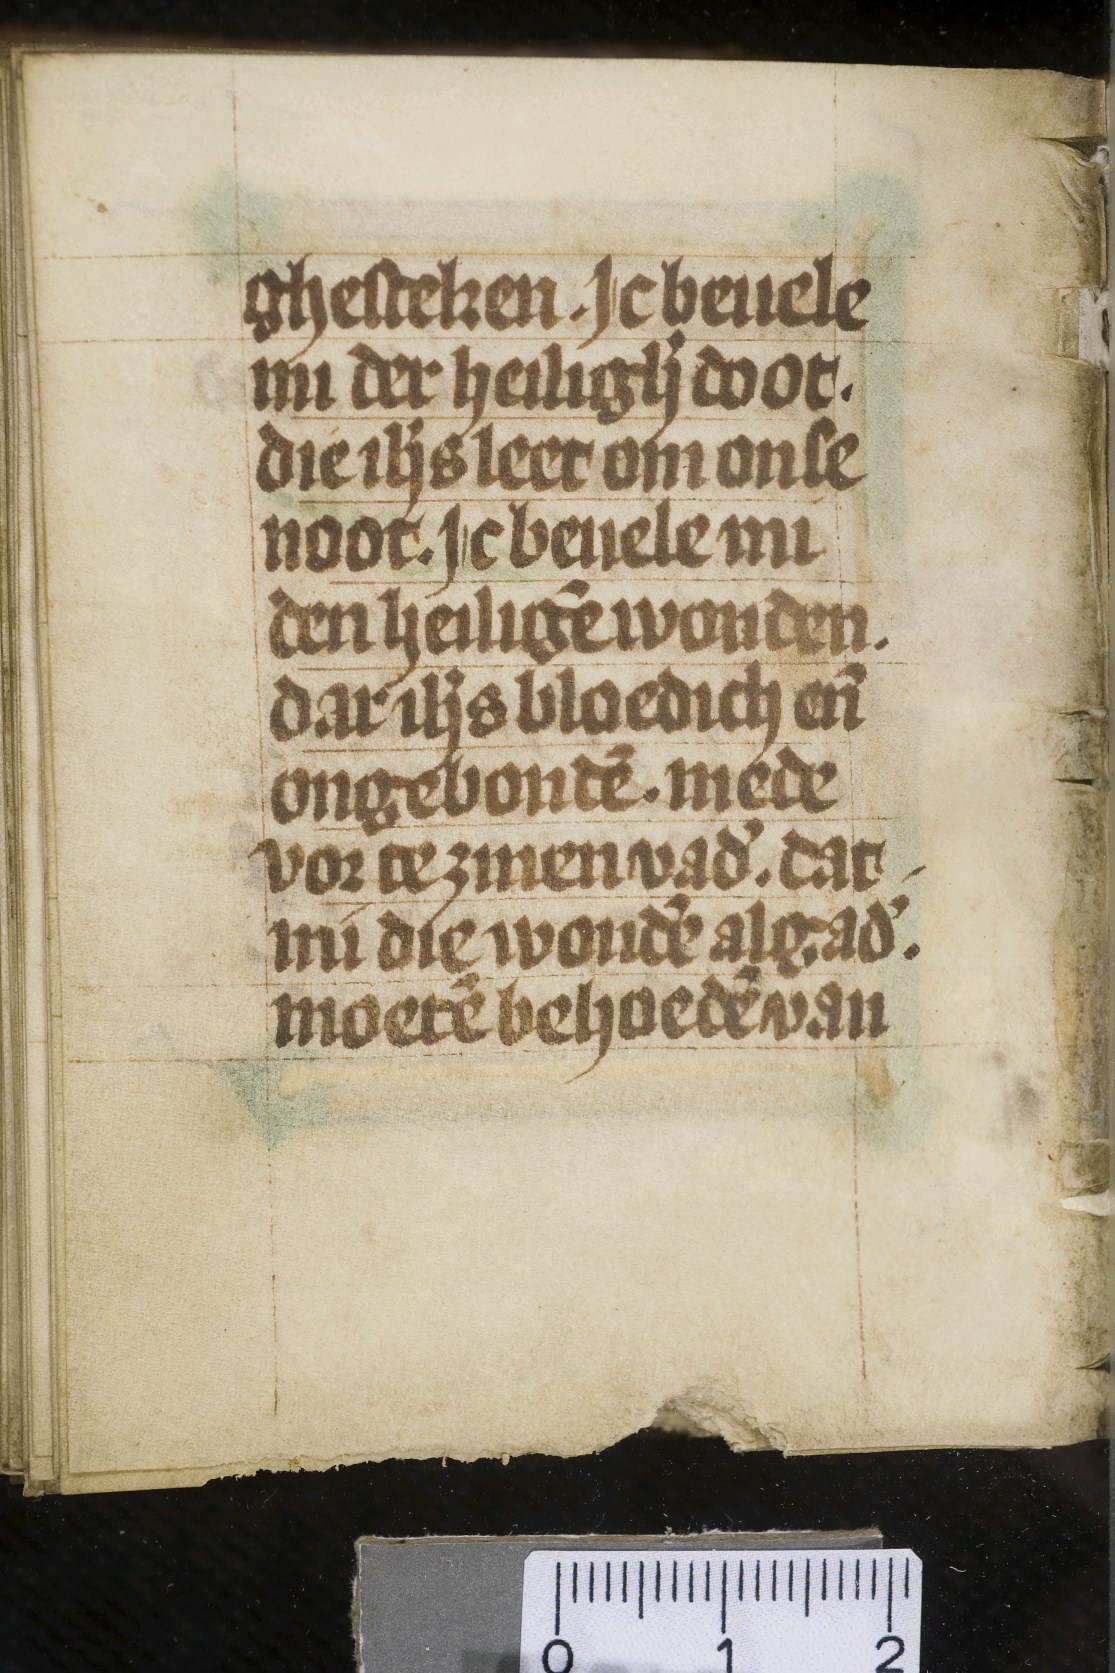 ghesteken. Jc beuele
mi der heiligh̄ doot.
die ih̄s leet om onse
noot. Jc beuele mi
den heiligē wonden.
dar ih̄s bloedich en̄
ongebondē. mede
vor te zinen vad'. dat
mi die wondē alg.ad'.
moetē behoedē van
0 1 2